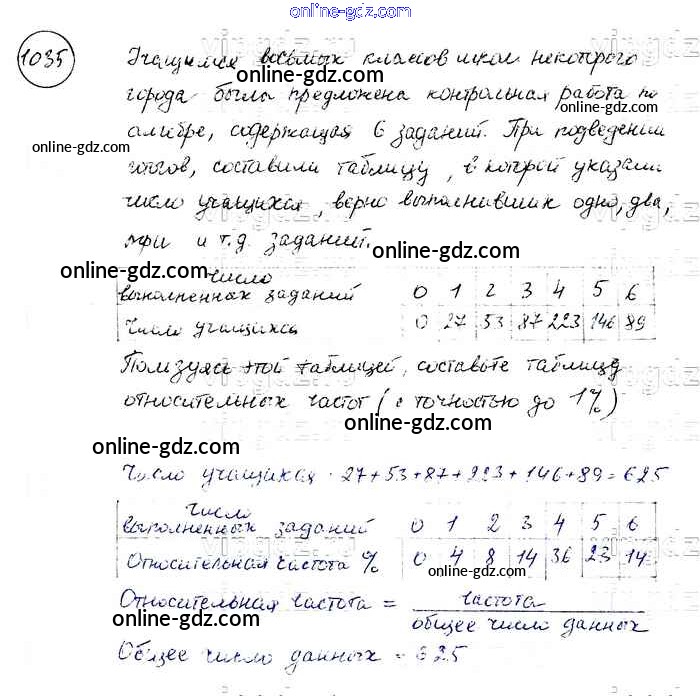 online-gdz.com
1035
Учащимся восьмых классов школ некоторого
online-gdz.com
города была предложена контрольная работа по
online-gdz.com
алгебре, содержащая 6 заданий. При подведении
online-gdz.com
итогов, составили таблицу, в которой указали
число учащихся, верно выполнивших одно, два,
online-gdz.com
три и т.д. заданий.
online-gdz.com
число
выполненных заданий 0 1 2 3 4 5 6
online-gdz.com
Число учащихся 0 27 53 87 223 146 89
Пользуясь этой таблицей, составьте таблицу
online-gdz.com
относительных частот (с точностью до 1%)
online-gdz.com
Число учащихся 27+53+87+223+146+89=625
число
выполненных заданий 0 1 2 3 4 5 6
online-gdz.com
Относительная частота % 0 4 8 14 36 23 14
online-gdz.com
Относительная частота = частота
общее число данных
online-gdz.com
Общее число данных = 625
online-gdz.com